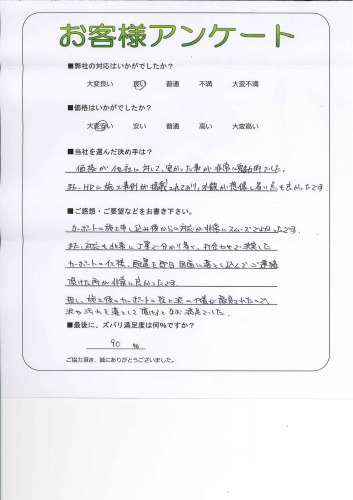 お客様アンケート
■弊社の対応はいかがでしたか？
大変良い 良い 普通 不満 大変不満
■価格はいかがでしたか？
大変安い 安い 普通 高い 大変高い
■当社を選んだ決め手は？
価格が他社に対して、安かった事が非常に魅力的でした。
また、HPに施工事例が掲載されており、外観が想像し易い点も良かったです
■ご感想・ご要望などをお書き下さい。
カーポートの施工申し込み後からの対応が非常にスムーズでよかったです。
また、対応も非常に丁寧で分かり易く、お打合わせで決定した
カーポートの仕様、配置を即日図面に落とし込んでご連絡
頂けた所が非常に良かったです。
但し、施工後のカーポートの柱に泥の汚れが散見されたので、
泥や汚れを落として頂けるとなお満足でした。
■最後に、ズバリ満足度は何%ですか？
90 %
ご協力頂き、誠にありがとうございました。